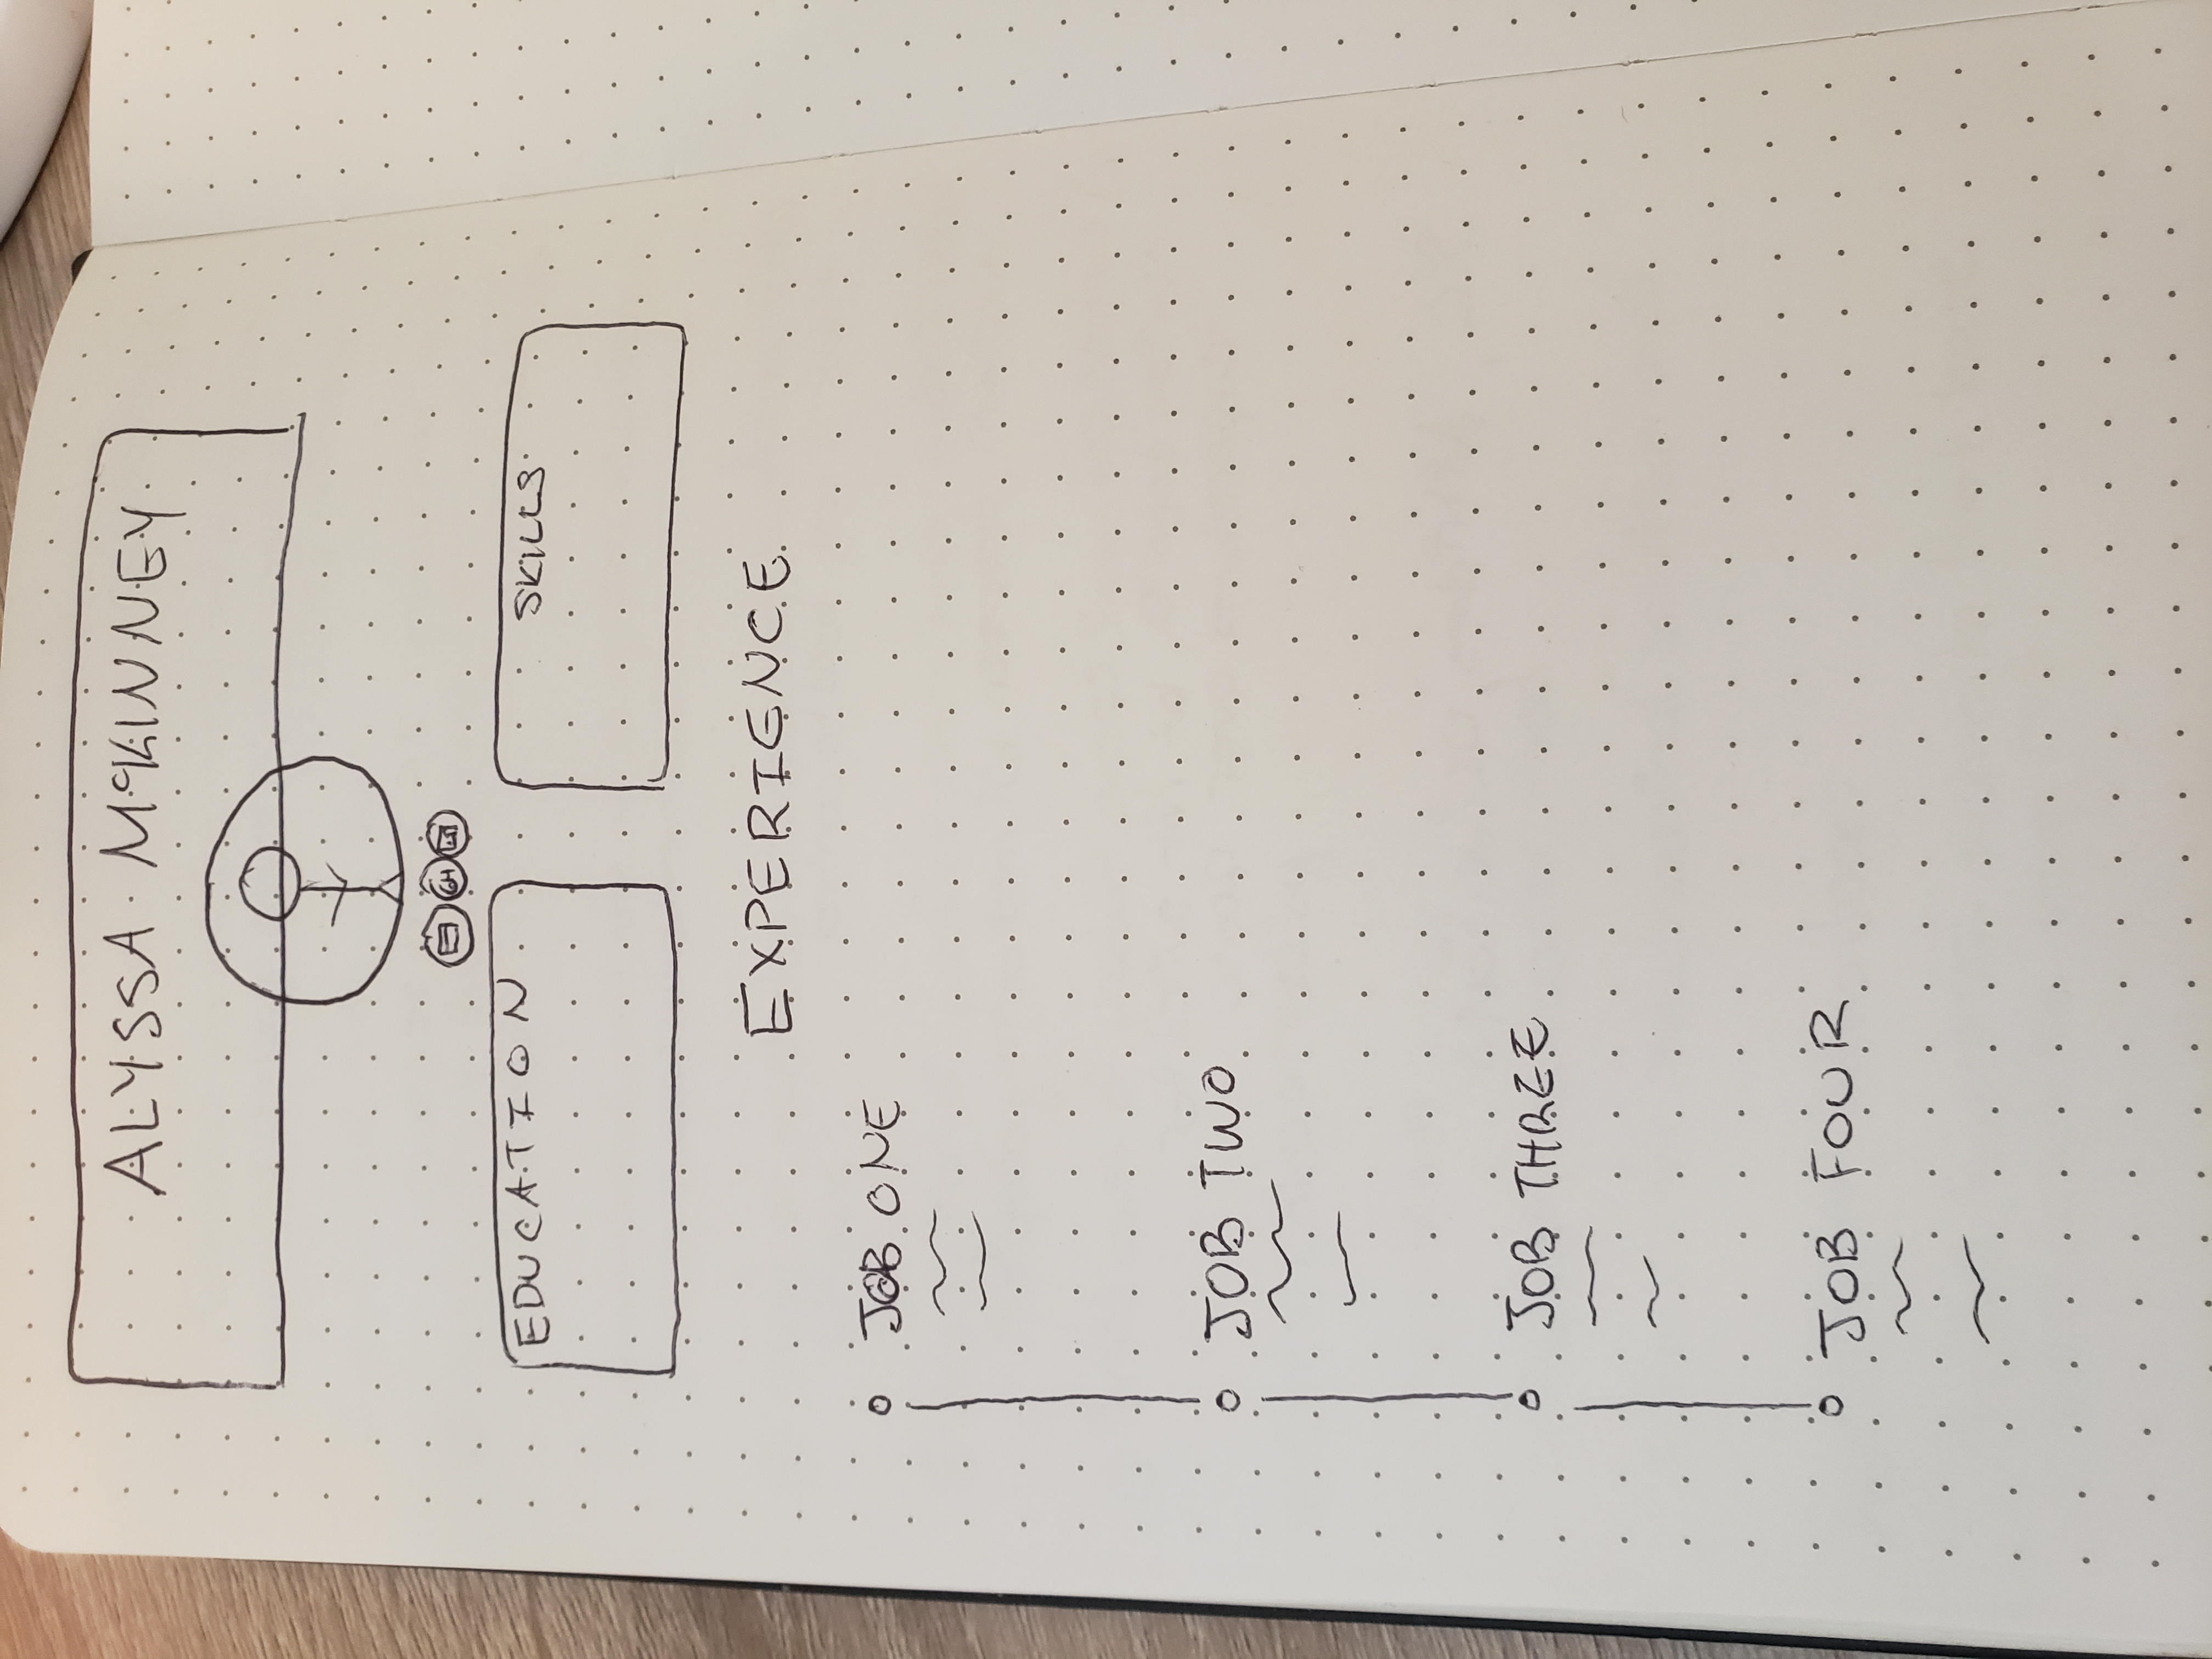 ALYSSA McKINNEY
GH
EDUCATION
SKILLS
EXPERIENCE
JOB ONE
JOB TWO
JOB THREE
JOB FOUR